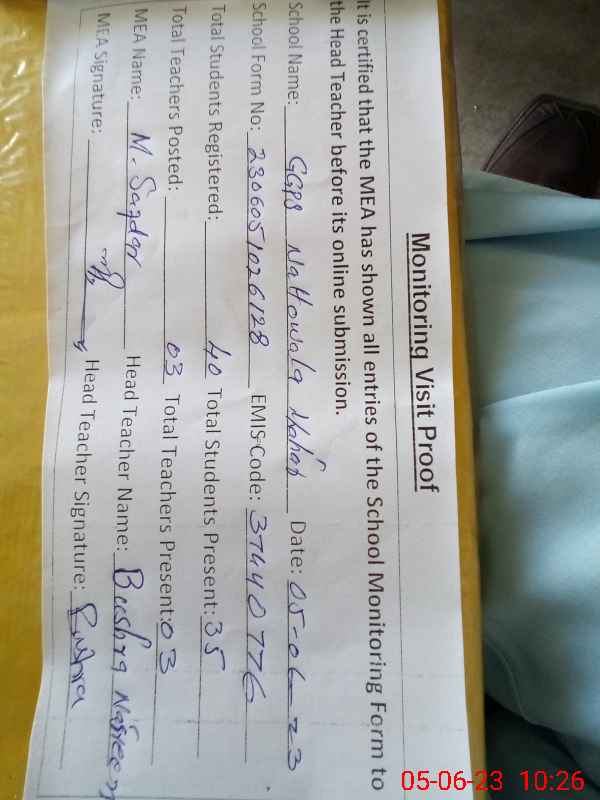 Monitoring Visit Proof
It is certified that the MEA has shown all entries of the School Monitoring Form to
the Head Teacher before its online submission.
School Name: GGPS Nattowala Date: 05-06-23
School Form No: 2306051026128 EMIS-Code: 37440776
Total Students Registered: 40 Total Students Present: 35
Total Teachers Posted: 03 Total Teachers Present: 03
MEA Name: M. Safdar Head Teacher Name: Bushra Nasreen
MEA Signature: Head Teacher Signature: Bushra
05-06-23 10:26